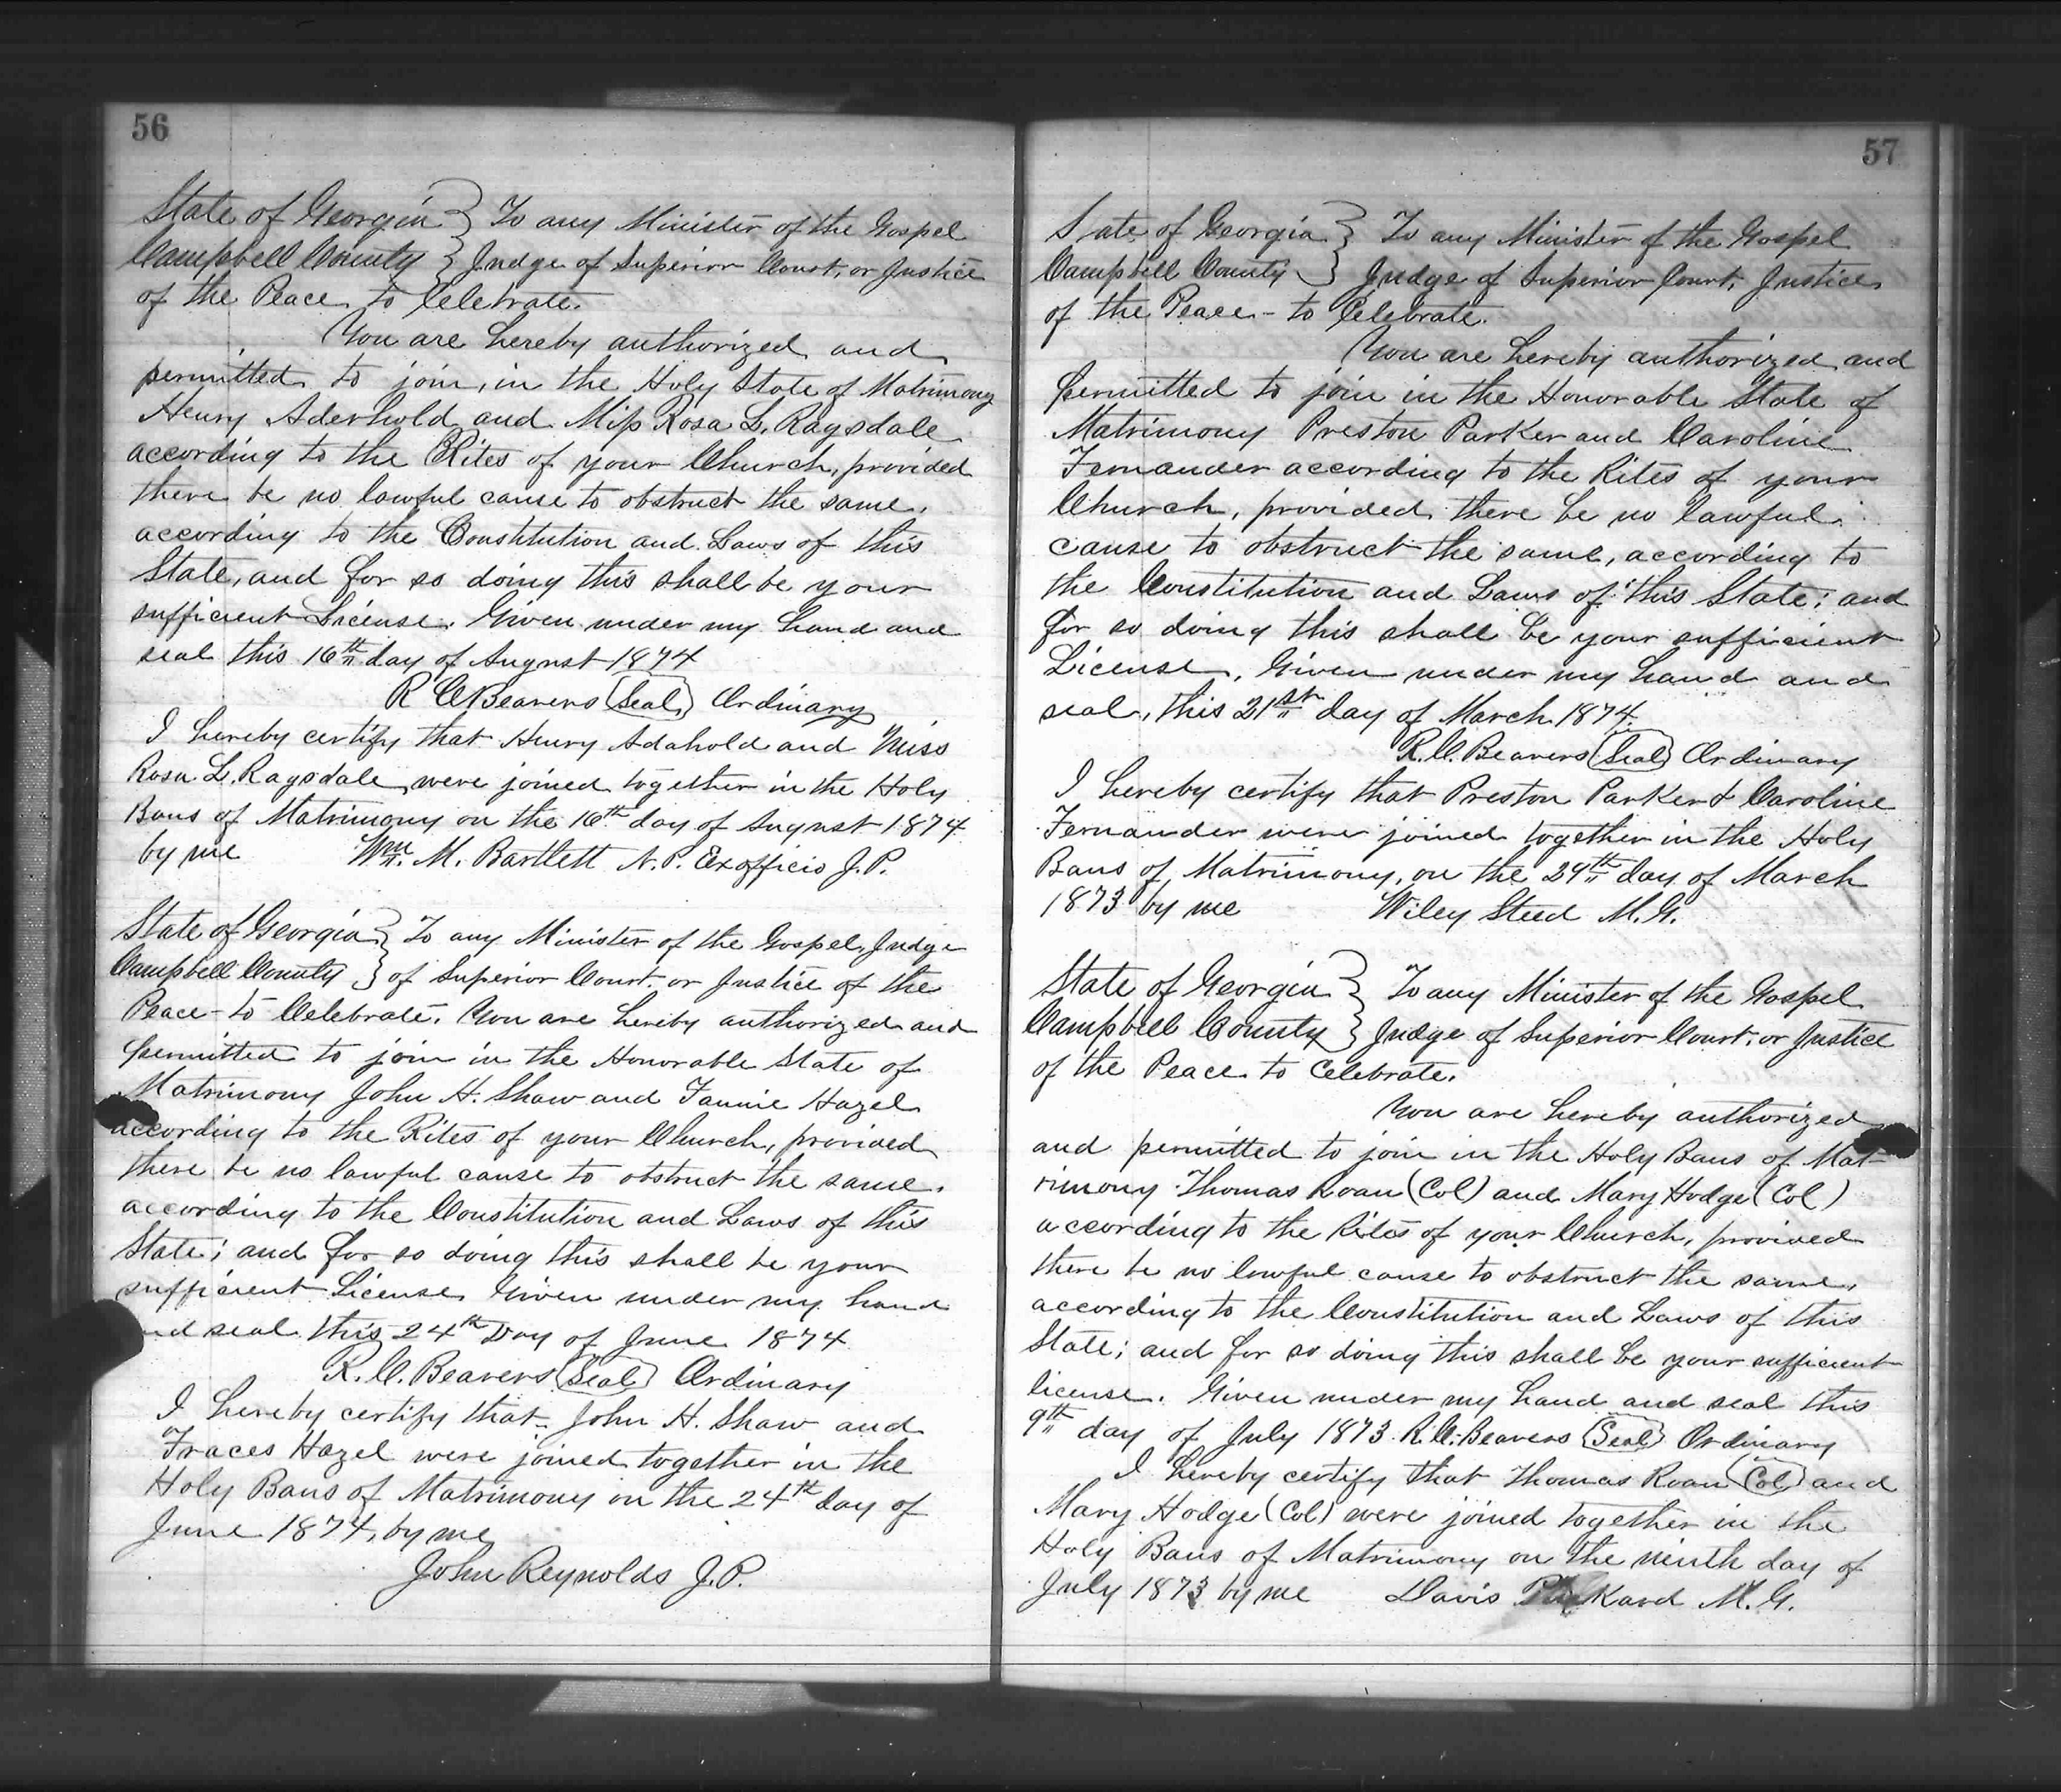 56
State of Georgia } To any Minister of the Gospel
Campbell County } Judge of Superior Court, or Justice
of the Peace to Celebrate.
You are hereby authorized and
permitted to join, in the Holy State of Matrimony
Henry Aderhold and Miss Rosa L. Ragsdale
according to the Rites of your Church, provided
there be no lawful cause to obstruct the same,
according to the Constitution and Laws of this
State, and for so doing this shall be your
sufficient License. Given under my hand and
seal this 16th day of August 1874
R C Beavers (Seal) Ordinary
I hereby certify that Henry Adahold and Miss
Rosa L. Ragsdale, were joined together in the Holy
Bans of Matrimony on the 16th day of August 1874
by me Wm. M. Bartlett N.P. Exofficio J.P.
State of Georgia } To any Minister of the Gospel, Judge
Campbell County } of Superior Court. or Justice of the
Peace to Celebrate. You are hereby authorized and
permitted to join in the Honorable State of
Matrimony John H. Shaw and Fannie Hazel
according to the Rites of your Church, provided
there be no lawful cause to obstruct the same.
according to the Constitution and Laws of this
State; and for so doing this shall be your
sufficient License. Given under my hand
and seal this 24th Day of June 1874
R. C. Beavers (Seal) Ordinary
I hereby certify that John H. Shaw and
Fraces Hazel were joined together in the
Holy Bans of Matrimony on the 24th day of
June 1874, by me
John Reynolds J.P.
57
State of Georgia } To any Minister of the Gospel
Campbell County } Judge of Superior Court, Justice
of the Peace - to Celebrate.
You are hereby authorized and
permitted to join in the Honorable State of
Matrimony Preston Parker and Caroline
Fernander according to the Rites of your
Church, provided there be no lawful
cause to obstruct the same, according to
the Constitution and Laws of this State; and
for so doing this shall be your sufficient
License, Given under my hand and
seal, this 21st day of March 1874.
R. C. Beavers (Seal) Ordinary
I hereby certify that Preston Parker & Caroline
Fernander were joined together in the Holy
Bans of Matrimony, on the 29th day of March
1873 by me Wiley Steed M.G.
State of Georgia } To any Minister of the Gospel
Campbell County } Judge of Superior Court, or Justice
of the Peace to Celebrate.
You are hereby authorized
and permitted to join in the Holy Bans of Mat-
rimony Thomas Roan (Col) and Mary Hodge (Col)
according to the Rites of your Church, provided
there be no lawful cause to obstruct the same,
according to the Constitution and Laws of this
State; and for so doing this shall be your sufficient
license. Given under my hand and seal this
9th day of July 1873 R. C. Beavers (Seal) Ordinary
I hereby certify that Thomas Roan (Col) and
Mary Hodge (Col) were joined together in the
Holy Bans of Matrimony on the ninth day of
July 1873 by me Davis M.G.